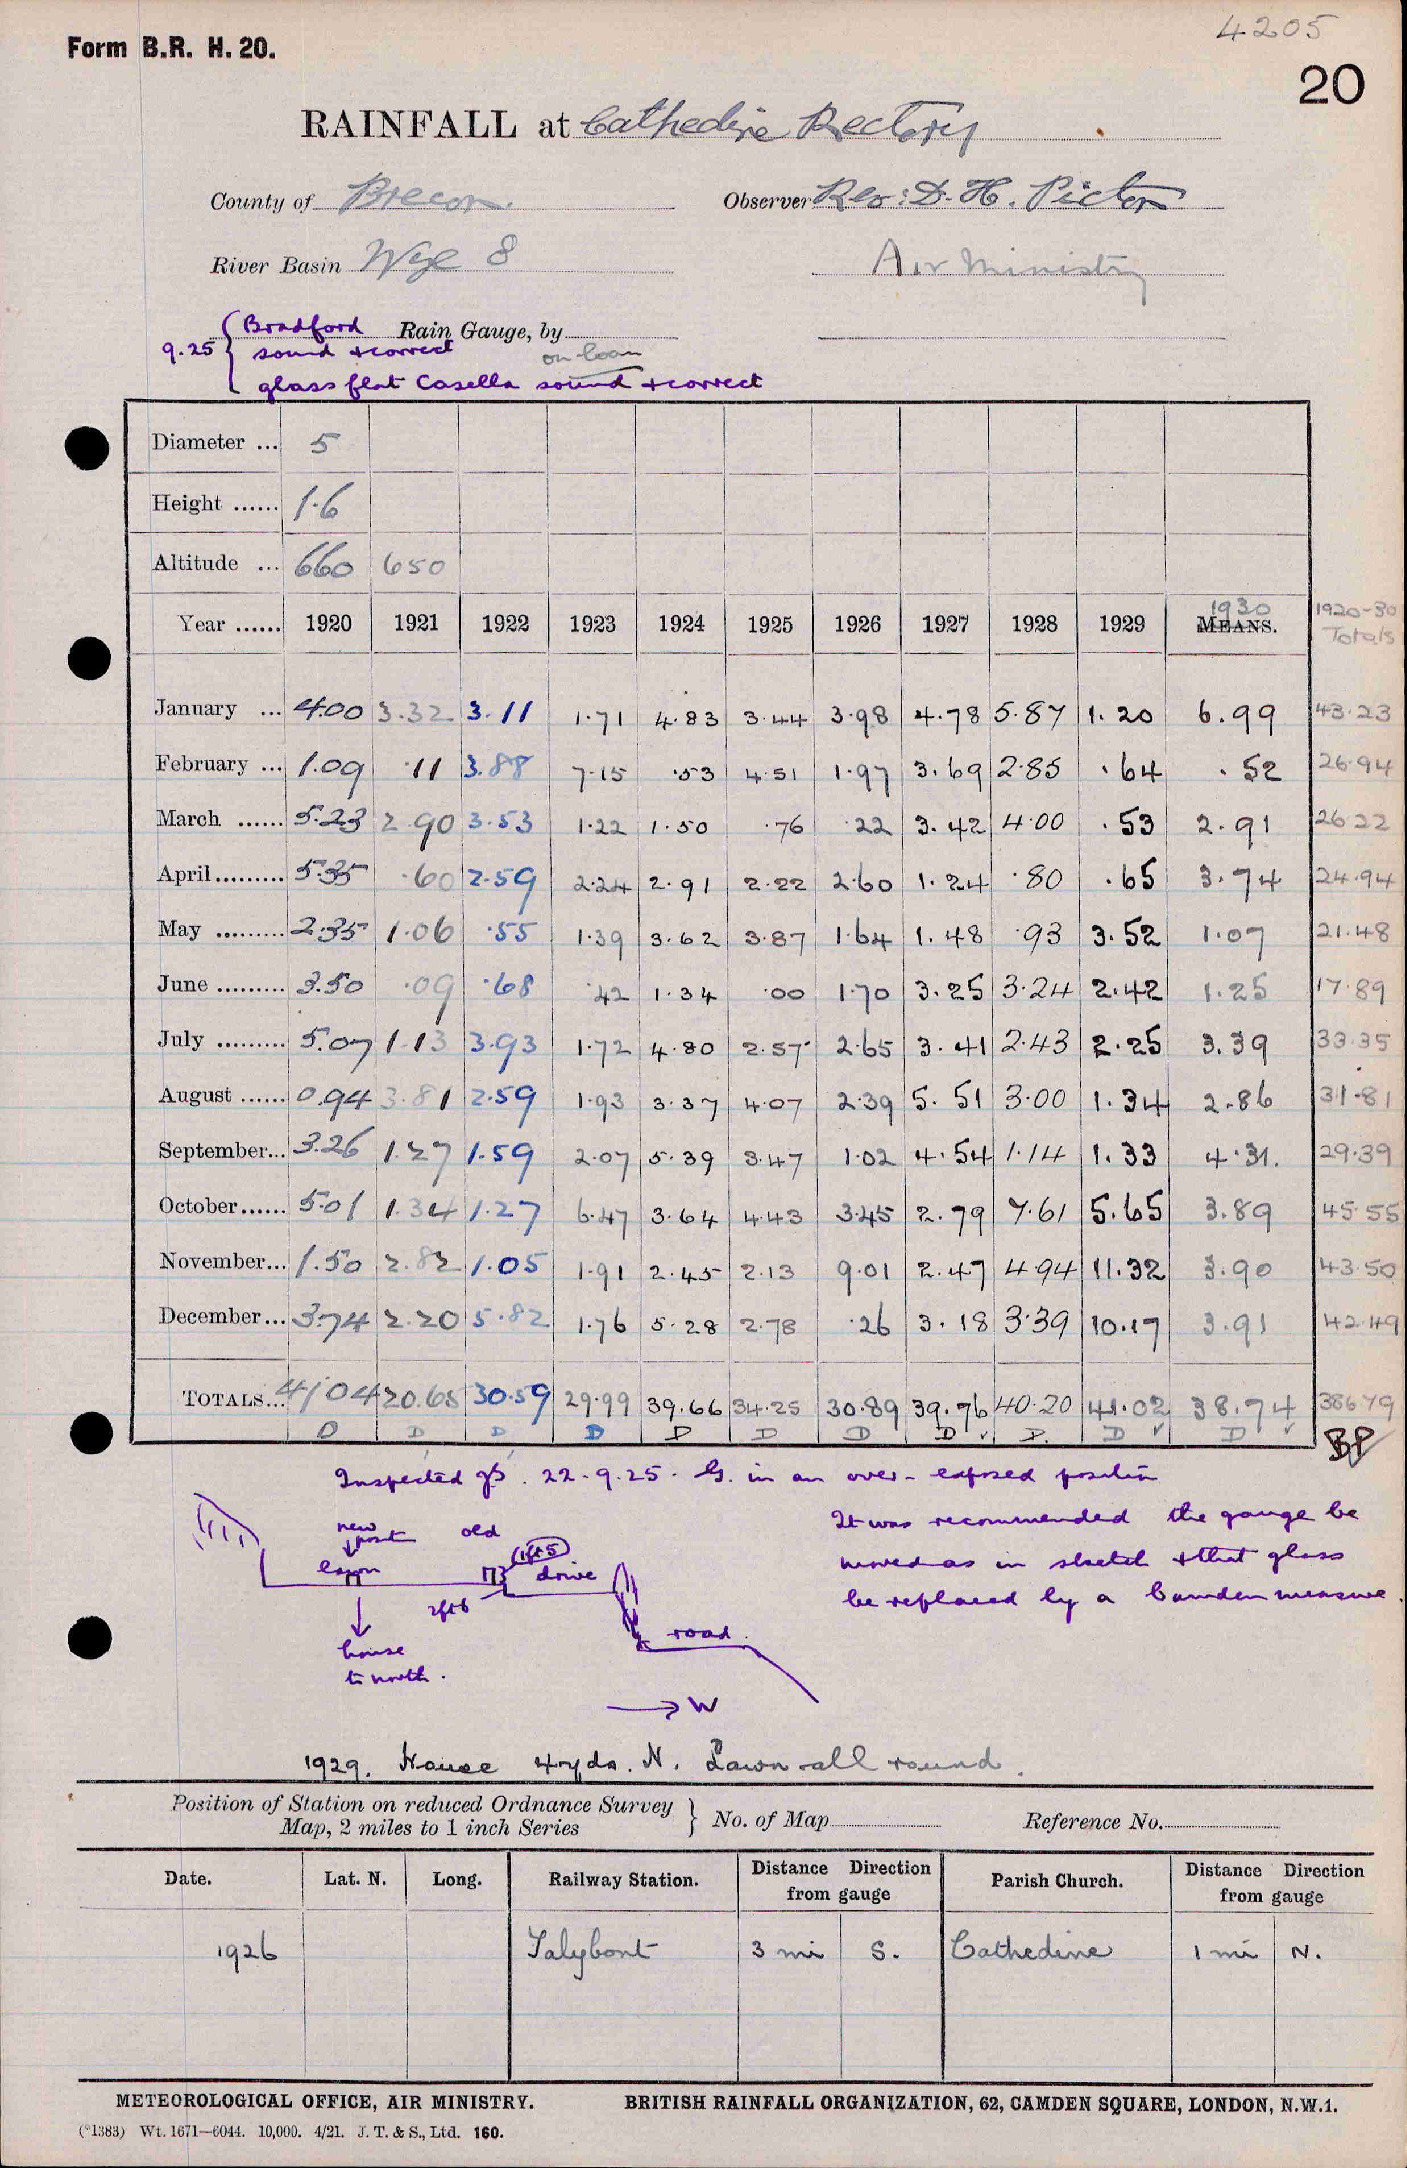 4205
Form B.R. H. 20.
20
RAINFALL at Cathedine Rectory
County of Brecon. Observer Rev: D. H. Picton
River Basin Wye 8 Air Ministry
Bradford Rain Gauge, by
9.25 sound + correct on loan
glass flat Casella sound + correct
Diameter ... 5
Height ...... 1.6
Altitude ... 660 650
Year ...... 1920 1921 1922 1923 1924 1925 1926 1927 1928 1929 1930 MEANS. 1920-30 Totals
January ... 4.00 3.32 3.11 1.71 4.83 3.44 3.98 4.78 5.87 1.20 6.99 43.23
February ... 1.09 .11 3.88 7.15 .53 4.51 1.97 3.69 2.85 .64 .52 26.94
March ...... 5.23 2.90 3.53 1.22 1.50 .76 .22 3.42 4.00 .53 2.91 26.22
April ......... 5.35 .60 2.59 2.24 2.91 2.22 2.60 1.24 .80 .65 3.74 24.94
May ......... 2.35 1.06 .55 1.39 3.62 3.87 1.64 1.48 .93 3.52 1.07 21.48
June ......... 3.50 .09 .68 .42 1.34 .00 1.70 3.25 3.24 2.42 1.25 17.89
July ......... 5.07 1.13 3.93 1.72 4.80 2.57 2.65 3.41 2.43 2.25 3.39 33.35
August ...... 0.94 3.81 2.59 1.93 3.37 4.07 2.39 5.51 3.00 1.34 2.86 31.81
September... 3.26 1.27 1.59 2.07 5.39 3.47 1.02 4.54 1.14 1.33 4.31. 29.39
October...... 5.01 1.34 1.27 6.47 3.64 4.43 3.45 2.79 7.61 5.65 3.89 45.55
November... 1.50 2.82 1.05 1.91 2.45 2.13 9.01 2.47 4.94 11.32 3.90 43.50
December... 3.74 2.20 5.82 1.76 5.28 2.78 .26 3.18 3.39 10.17 3.91 42.49
TOTALS... 41.04 20.65 30.59 29.99 39.66 34.25 30.89 39.76 40.20 41.02 38.74 386.79
D D D D D D D D ✓ D. D ✓ D ✓
Inspected 22.9.25. G. in an over-exposed position
It was recommended the gauge be
moved as in sketch + that glass
be replaced by a Camden measure.
new post old
lawn drive
2ft6
road
house
to north.
→ W
1929. House 4 yds. N. Lawn all round.
Position of Station on reduced Ordnance Survey
Map, 2 miles to 1 inch Series } No. of Map Reference No.
Date. Lat. N. Long. Railway Station. Distance Direction from gauge Parish Church. Distance Direction from gauge
1926 Talybont 3 mi S. Cathedine 1 mi N.
METEOROLOGICAL OFFICE, AIR MINISTRY. BRITISH RAINFALL ORGANIZATION, 62, CAMDEN SQUARE, LONDON, N.W.1.
(*1383) Wt. 1671—6044. 10,000. 4/21. J. T. & S., Ltd. 160.